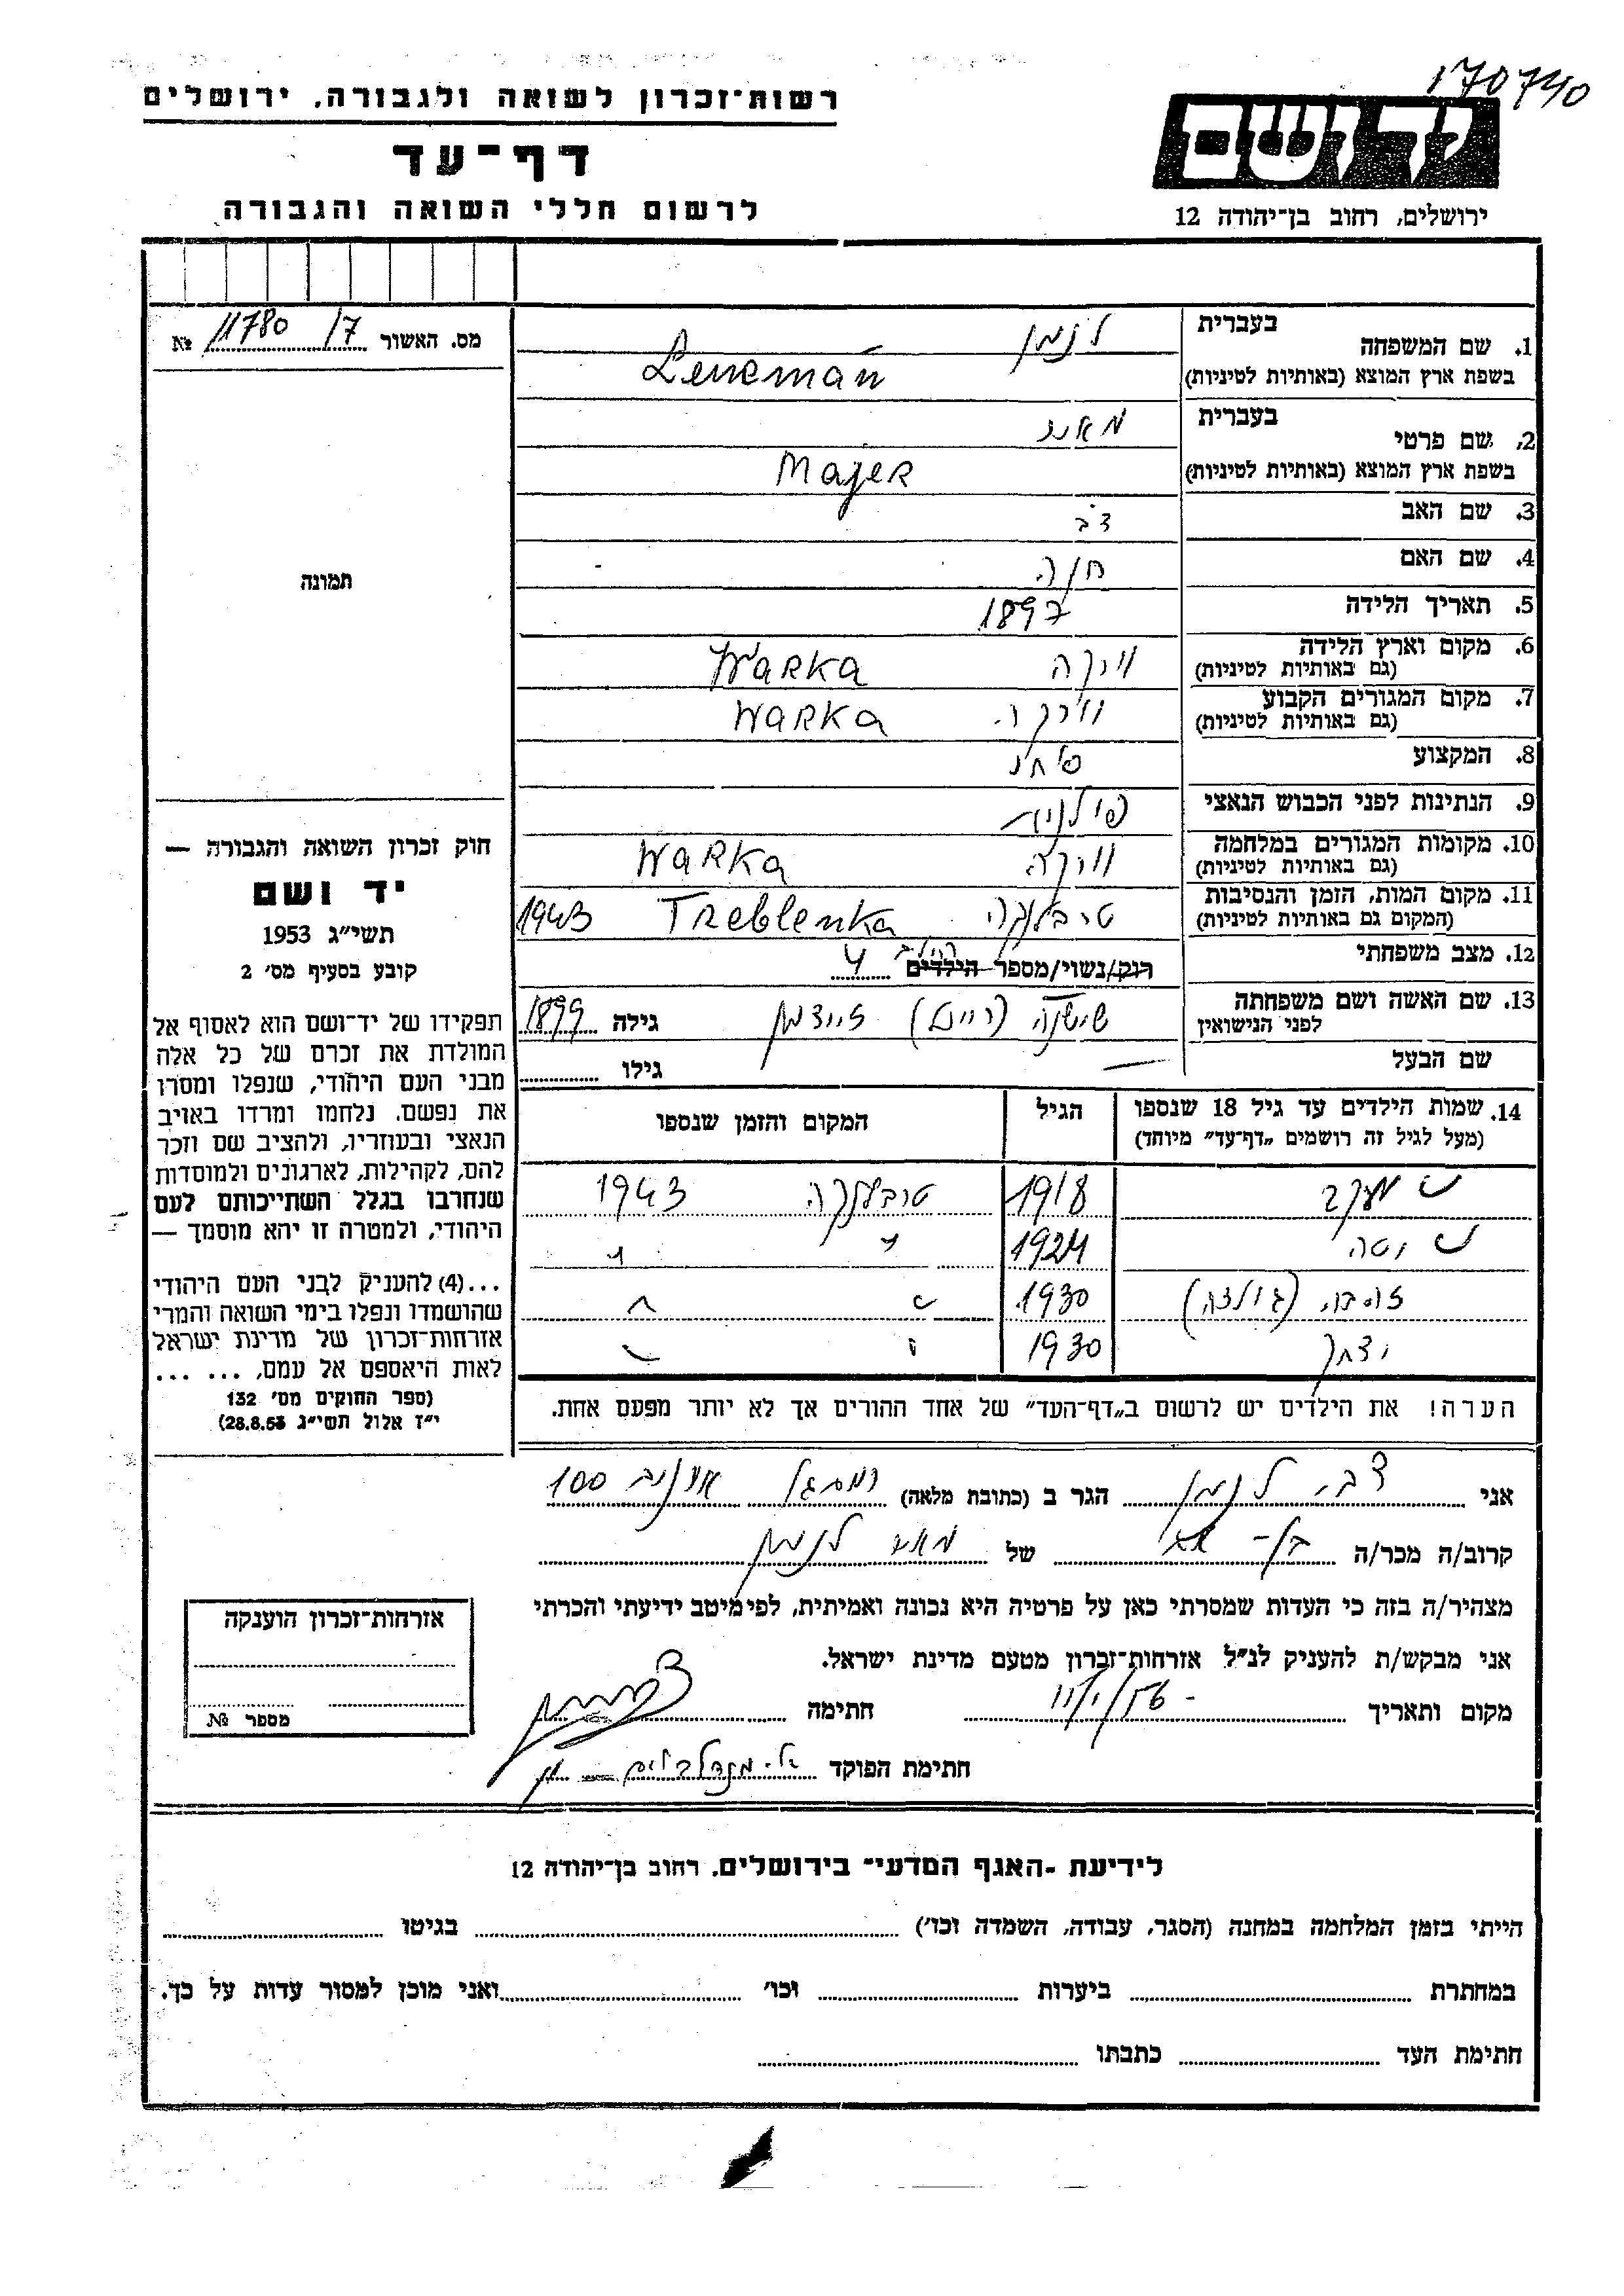 170740
רשות־זכרון לשואה ולגבורה, ירושלים
דף־עד
לרשום חללי השואה והגבורה
יד ושם
ירושלים, רחוב בן־יהודה 12
מס. האשור 7/ 11780 №
תמונה
חוק זכרון השואה והגבורה —
יד ושם
תשי״ג 1953
קובע בסעיף מס׳ 2
תפקידו של יד־ושם הוא לאסוף אל
המולדת את זכרם של כל אלה
מבני העם היהודי, שנפלו ומסרו
את נפשם, נלחמו ומרדו באויב
הנאצי ובעוזריו, ולהציב שם וזכר
להם, לקהילות, לארגונים ולמוסדות
שנחרבו בגלל השתייכותם לעם
היהודי, ולמטרה זו יהא מוסמך —
...(4) להעניק לבני העם היהודי
שהושמדו ונפלו בימי השואה והמרי
אזרחות־זכרון של מדינת ישראל
לאות היאספם אל עמם, ... ...
(ספר החוקים מס׳ 132
י״ז אלול תשי״ג 28.8.53)
1. שם המשפחה
בעברית לנמן
בשפת ארץ המוצא (באותיות לטיניות) Leneman
2. שם פרטי
בעברית מאיר
בשפת ארץ המוצא (באותיות לטיניות) Majer
3. שם האב
4. שם האם חנה
5. תאריך הלידה 1897
6. מקום וארץ הלידה
(גם באותיות לטיניות) וורקה Warka
7. מקום המגורים הקבוע
(גם באותיות לטיניות) וורקה Warka
8. המקצוע סוחר
9. הנתינות לפני הכבוש הנאצי פולנית
10. מקומות המגורים במלחמה
(גם באותיות לטיניות) וורקה Warka
11. מקום המות, הזמן והנסיבות
(המקום גם באותיות לטיניות) טרבלנקה Treblenka 1943
12. מצב משפחתי רווק/נשוי/מספר הילדים 4
13. שם האשה ושם משפחתה
לפני הנישואין שושנה גילה 1899
שם הבעל — גילו
14. שמות הילדים עד גיל 18 שנספו
(מעל לגיל זה רושמים „דף־עד״ מיוחד) הגיל המקום והזמן שנספו
יעקב 1918 טרבלנקה 1943
1924 " "
זהבה (גולדה) 1930 " "
יצחק 1930 " "
הערה! את הילדים יש לרשום ב„דף־העד״ של אחד ההורים אך לא יותר מפעם אחת.
אני לנמן הגר ב (כתובת מלאה) 100
קרוב/ה מכר/ה בן־ של מאיר לנמן
מצהיר/ה בזה כי העדות שמסרתי כאן על פרטיה היא נכונה ואמיתית, לפי מיטב ידיעתי והכרתי
אני מבקש/ת להעניק לנ״ל אזרחות־זכרון מטעם מדינת ישראל.
מקום ותאריך חתימה
חתימת הפוקד
אזרחות־זכרון הוענקה
מספר №
לידיעת ־האגף המדעי־ בירושלים, רחוב בן־יהודה 12
הייתי בזמן המלחמה במחנה (הסגר, עבודה, השמדה וכו׳) בגיטו
במחתרת ביערות וכו׳ ואני מוכן למסור עדות על כך.
חתימת העד כתבתו